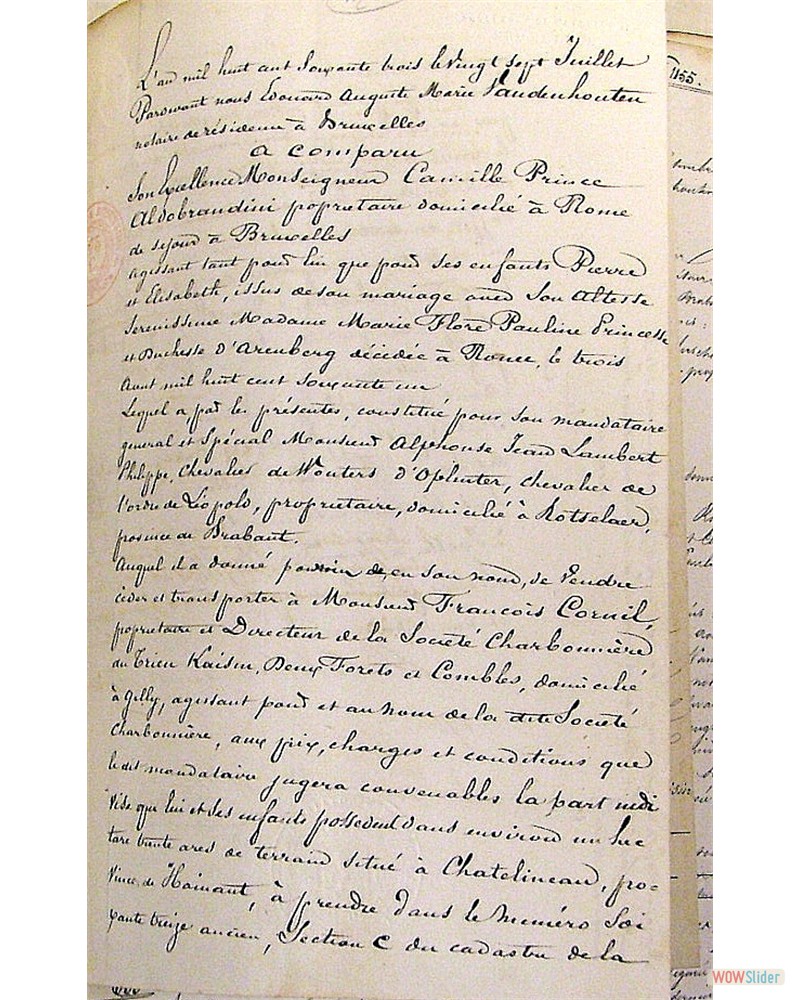 L'an mil huit cent soixante trois le vingt sept Juillet
Pardevant nous Edouard Auguste Marie Vandenhouten
notaire de résidence à Bruxelles
a comparu
Son Excellence Monseigneur Camille Prince
Aldobrandini propriétaire domicilié à Rome
de séjour à Bruxelles
agissant tant pour lui que pour ses enfants Pierre
et Elisabeth, issus de son mariage avec Son Altesse
Serenissime Madame Marie Flore Pauline Princesse
et Duchesse D'Arenberg décédée à Rome, le trois
Aout mil huit cent soixante un
Lequel a par les présentes, constitué pour son mandataire
general et Spécial Monsieur Alphonse Jean Lambert
Philippe, Chevalier de Wouters D'Oplinter, chevalier de
l'ordre de Léopold, propriétaire, domicilié à Rotselaer,
province de Brabant.
Auquel il a donné pouvoir de, en son nom, de Vendre
céder et transporter à Monsieur François Cornil,
propriétaire et Directeur de la Societé Charbonnière
du Trieu Kaisin, Deux Forets et Combles, domicilié
à Gilly, agissant pour et au nom de la dite Societé
Charbonnière, aux prix, charges et conditions que
le dit mandataire jugera convenables la part indi
vise que lui et ses enfants possedent dans environ un hec
tare trente ares de terrain situé à Chatelineau, pro-
vince de Hainaut, à prendre dans le Numéro Soi
xante treize ancien, Section C du cadastre de la
1155.
WOWSlider